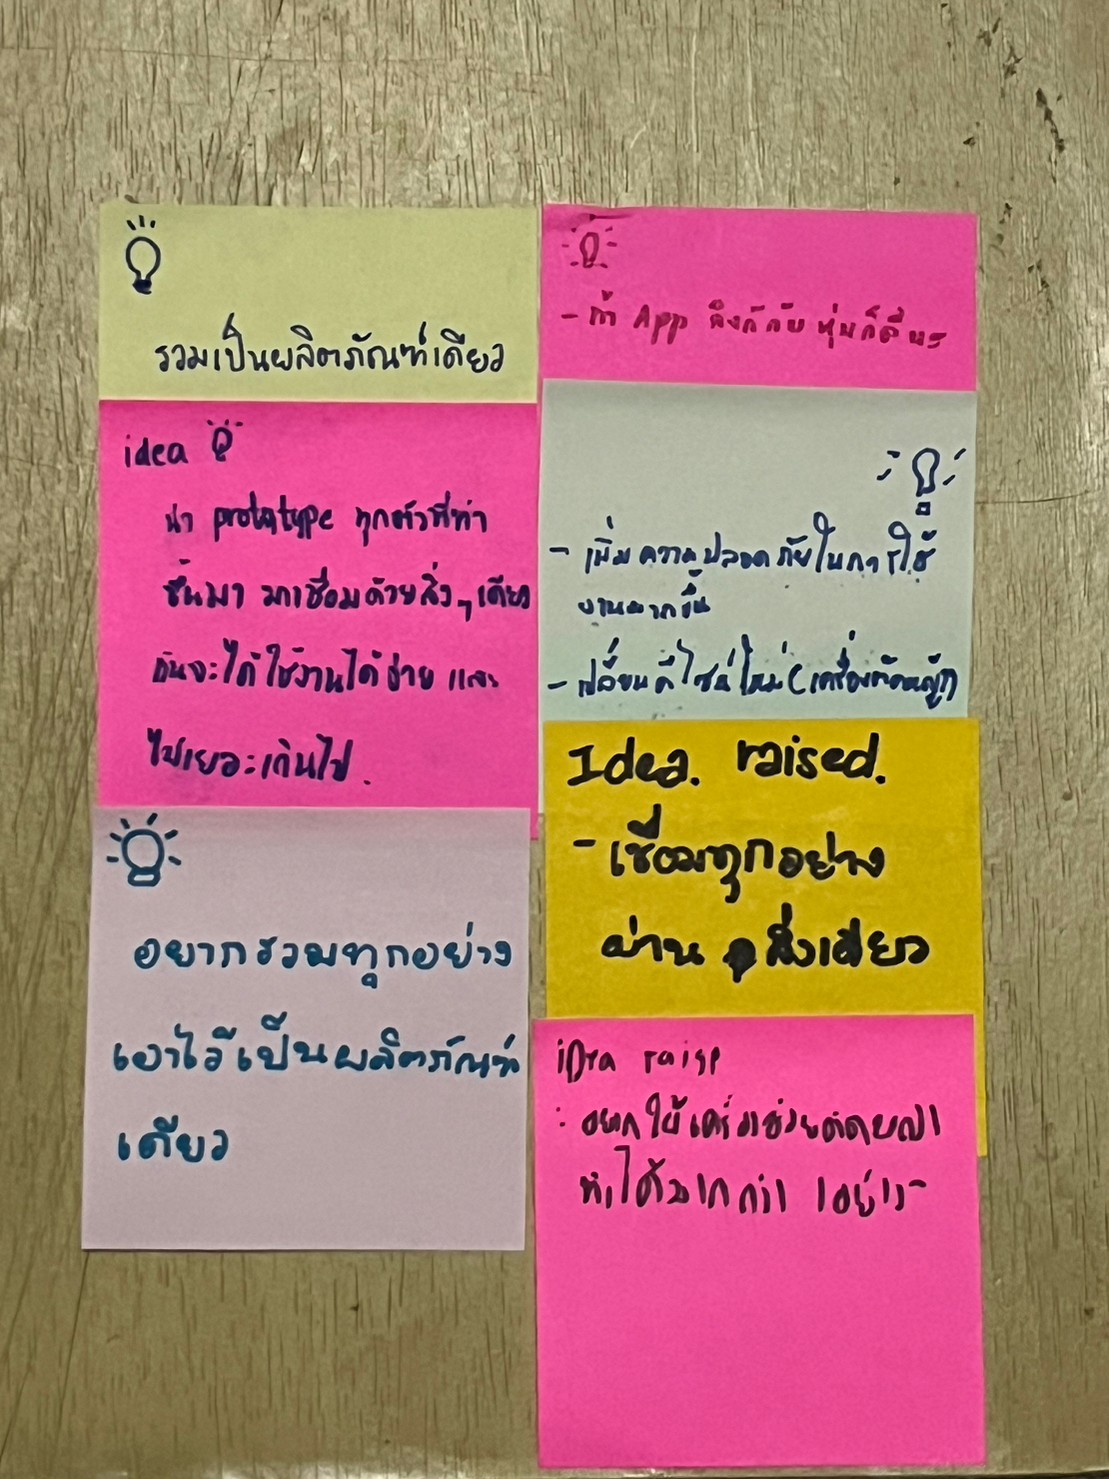 รวมเป็นผลิตภัณฑ์เดียว
idea
นำ prototype ทุกตัวที่ทำ
ขึ้นมา มาเชื่อมด้วยสิ่งๆเดียว
กันจะได้ใช้งานได้ง่าย และ
ไม่เยอะเกินไป.
อยากรวมทุกอย่าง
เอาไว้เป็นผลิตภัณฑ์
เดียว
- ทำ App ลิงก์กับหุ่นก็ดีนะ
- เพิ่มความปลอดภัยในการใช้
งานมากขึ้น
- เปลี่ยนดีไซน์ใหม่(เครื่องตัดหญ้า)
Idea. raised.
- เชื่อมทุกอย่าง
ผ่าน สิ่งเดียว
iDea raise
: อยากให้เครื่องช่วยตัดหญ้า
ทำได้มากกว่า 1อย่าง